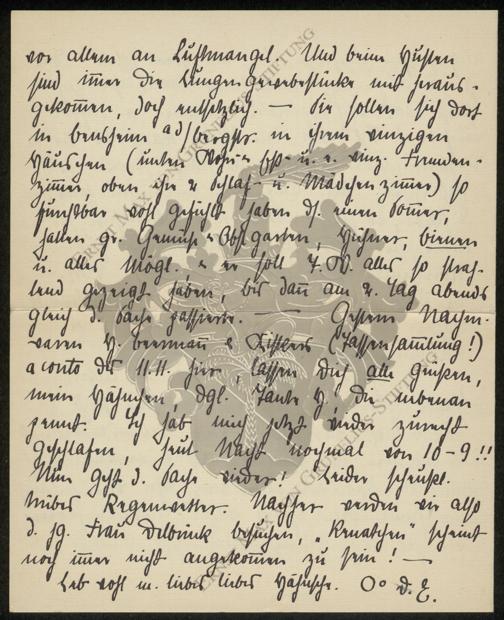 vor allem an Luftmangel. Und beim Husten
sind immer die Lungengewebestücke mit heraus-
gekommen, doch entsetzlich. — Sie sollen sich dort
in Bensheim a d/Bergstr. in ihrem winzigen
Häuschen (unten Wohn- Ess- u. e. winz. Fremden-
zimmer, oben ihr 2 Schlaf- u. Mädchenzimmer) so
furchtbar wohl gefühlt haben ds. einen Sommer,
hatten gr. Gemüse & Obstgarten, Hühner, Bienen
u. alles Mögl. & er soll F. W. alles so strah-
lend gezeigt haben, bis dann am 2. Tag abends
gleich d. Sache passierte. — Gestern Nachm.
waren H. Beermann &
(Tassensammlung!)
a conto des 11.11. hier, lassen Dich alle grüßen,
mein Hähnchen, dgl. Tante H., die nebenan
pennt. Ich hab mich jetzt wieder zurecht
geschlafen, heut Nacht nochmal von 10-9!!
Nun geht d. Sache wieder! Leider scheußl.
trübes Regenwetter. Nachher werden wir also
d. jg. Frau Delbrück besuchen, „Renatchen" scheint
noch immer nicht angekommen zu sein! —
Leb wohl m. lieber lieber Hähnsche. Oo D. E.
ERNST MAX VON GRUNELIUS-STIFTUNG
ERNST MAX VON GRUNELIUS-STIFTUNG